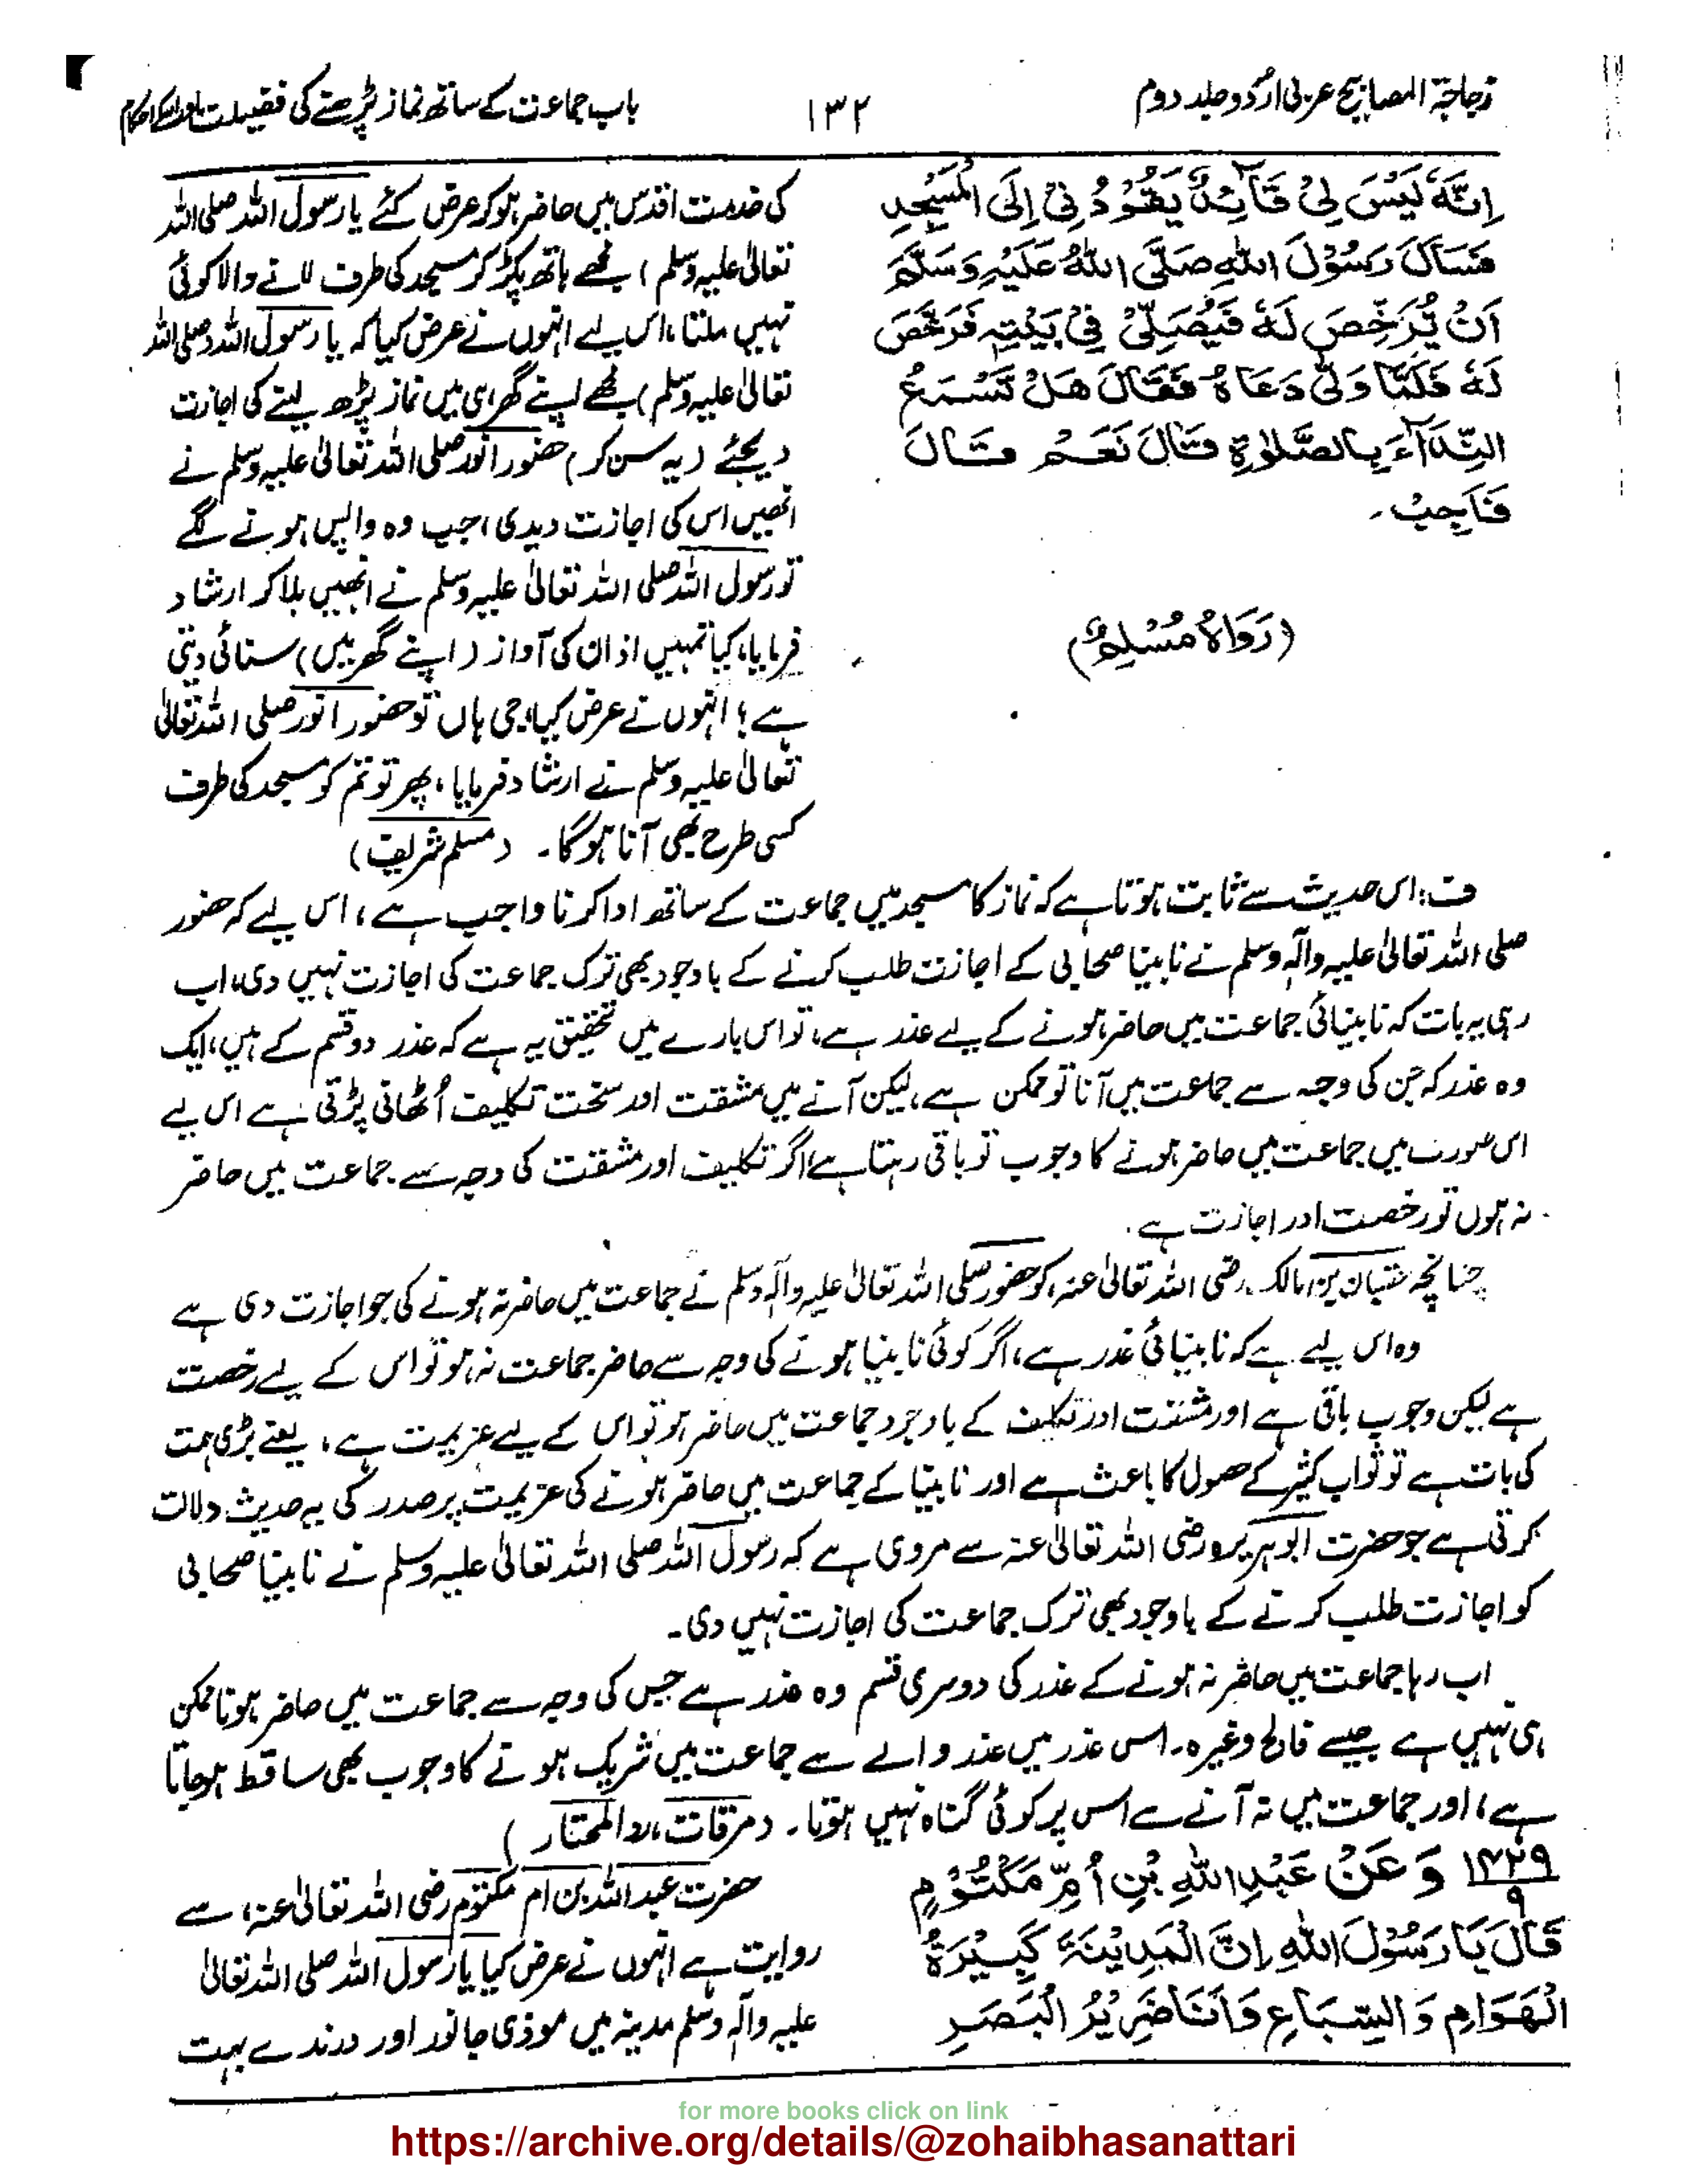 زجاجۃ المصابیح عربی اردو جلد دوم
۱۳۲
باب جماعت کے ساتھ نماز پڑھنے کی فضیلت اور اسکے احکام
اِنَّهٗ لَيْسَ لِيْ قَآئِدٌ يَقُوْدُنِيْ اِلَى الْمَسْجِدِ
فَسَأَلَ رَسُوْلَ اللّٰهِ صَلَّى اللّٰهُ عَلَيْهِ وَسَلَّمَ
اَنْ يُّرَخِّصَ لَهٗ فَيُصَلِّىْ فِيْ بَيْتِهٖ فَرَخَّصَ
لَهٗ فَلَمَّا وَلّٰى دَعَاهُ فَقَالَ هَلْ تَسْمَعُ
النِّدَآءَ بِالصَّلٰوةِ قَالَ نَعَمْ قَالَ
فَاَجِبْ۔
(رَوَاهُ مُسْلِمٌ)
کی خدمت اقدس میں حاضر ہوکر عرض کئے یا رسول اللہ صلی اللہ
تعالیٰ علیہ وسلم) مجھے ہاتھ پکڑ کر مسجد کی طرف لانے والا کوئی
نہیں ملتا، اس لیے انہوں نے عرض کیا کہ یا رسول اللہ (صلی اللہ
تعالیٰ علیہ وسلم) مجھے اپنے گھر ہی میں نماز پڑھ لینے کی اجازت
دیجئے (یہ سن کر) حضور انور صلی اللہ تعالیٰ علیہ وسلم نے
انھیں اس کی اجازت دیدی، جب وہ واپس ہونے لگے
تو رسول اللہ صلی اللہ تعالیٰ علیہ وسلم نے انھیں بلا کر ارشاد
فرمایا، کیا تمہیں اذان کی آواز (اپنے گھر میں) سنائی دیتی
ہے؟ انہوں نے عرض کیا، جی ہاں تو حضور انور صلی اللہ تعالیٰ
تعالیٰ علیہ وسلم نے ارشاد فرمایا، پھر تو تم کو مسجد کی طرف
کسی طرح بھی آنا ہوگا۔ (مسلم شریف)
ف: اس حدیث سے ثابت ہوتا ہے کہ نماز کا مسجد میں جماعت کے ساتھ ادا کرنا واجب ہے، اس لیے کہ حضور
صلی اللہ تعالیٰ علیہ وآلہ وسلم نے نابینا صحابی کے اجازت طلب کرنے کے باوجود بھی ترک جماعت کی اجازت نہیں دی، اب
رہی یہ بات کہ نابینائی جماعت میں حاضر ہونے کے لیے عذر ہے، تو اس بارے میں تحقیق یہ ہے کہ عذر دو قسم کے ہیں، ایک
وہ عذر کہ جن کی وجہ سے جماعت میں آنا تو ممکن ہے، لیکن آنے میں مشقت اور سخت تکلیف اُٹھانی پڑتی ہے اس لیے
اس صورت میں جماعت میں حاضر ہونے کا وجوب تو باقی رہتا ہے، اگر تکلیف اور مشقت کی وجہ سے جماعت میں حاضر
نہ ہوں تو رخصت اور اجازت ہے۔
چنانچہ عتبان بن مالک رضی اللہ تعالیٰ عنہ، کو حضور صلی اللہ تعالیٰ علیہ وآلہ وسلم نے جماعت میں حاضر نہ ہونے کی جو اجازت دی ہے
وہ اس لیے ہے کہ نابینائی عذر ہے، اگر کوئی نابینا ہونے کی وجہ سے حاضر جماعت نہ ہو تو اس کے لیے رخصت
ہے لیکن وجوب باقی ہے اور مشقت اور تکلیف کے باوجود جماعت میں حاضر ہو تو اس کے لیے عزیمت ہے، یعنے بڑی ہمت
کی بات ہے تو ثواب کثیر کے حصول کا باعث ہے اور نابینا کے جماعت میں حاضر ہونے کی عزیمت پر صدر کی یہ حدیث دلالت
کرتی ہے جو حضرت ابو ہریرہ رضی اللہ تعالیٰ عنہ سے مروی ہے کہ رسول اللہ صلی اللہ تعالیٰ علیہ وسلم نے نابینا صحابی
کو اجازت طلب کرنے کے باوجود بھی ترک جماعت کی اجازت نہیں دی۔
اب رہا جماعت میں حاضر نہ ہونے کے عذر کی دوسری قسم وہ عذر ہے جس کی وجہ سے جماعت میں حاضر ہونا ممکن
ہی نہیں ہے جیسے فالج وغیرہ۔ اس عذر میں عذر والے سے جماعت میں شریک ہونے کا وجوب بھی ساقط ہوجاتا
ہے، اور جماعت میں نہ آنے سے اس پر کوئی گناہ نہیں ہوتا۔ (مرقات، ردالمحتار)
۱۴۲۹
۹
وَعَنْ عَبْدِ اللّٰهِ بْنِ اُمِّ مَكْتُوْمٍ
قَالَ يَا رَسُوْلَ اللّٰهِ اِنَّ الْمَدِيْنَةَ كَبِيْرَةُ
الْهَوَامِ وَالسِّبَاعِ وَاَنَا ضَرِيْرُ الْبَصَرِ
حضرت عبد اللہ بن ام مکتوم رضی اللہ تعالیٰ عنہ، سے
روایت ہے انہوں نے عرض کیا یا رسول اللہ صلی اللہ تعالیٰ
علیہ وآلہ وسلم مدینہ میں موذی جانور اور درندے بہت
for more books click on link
https://archive.org/details/@zohaibhasanattari